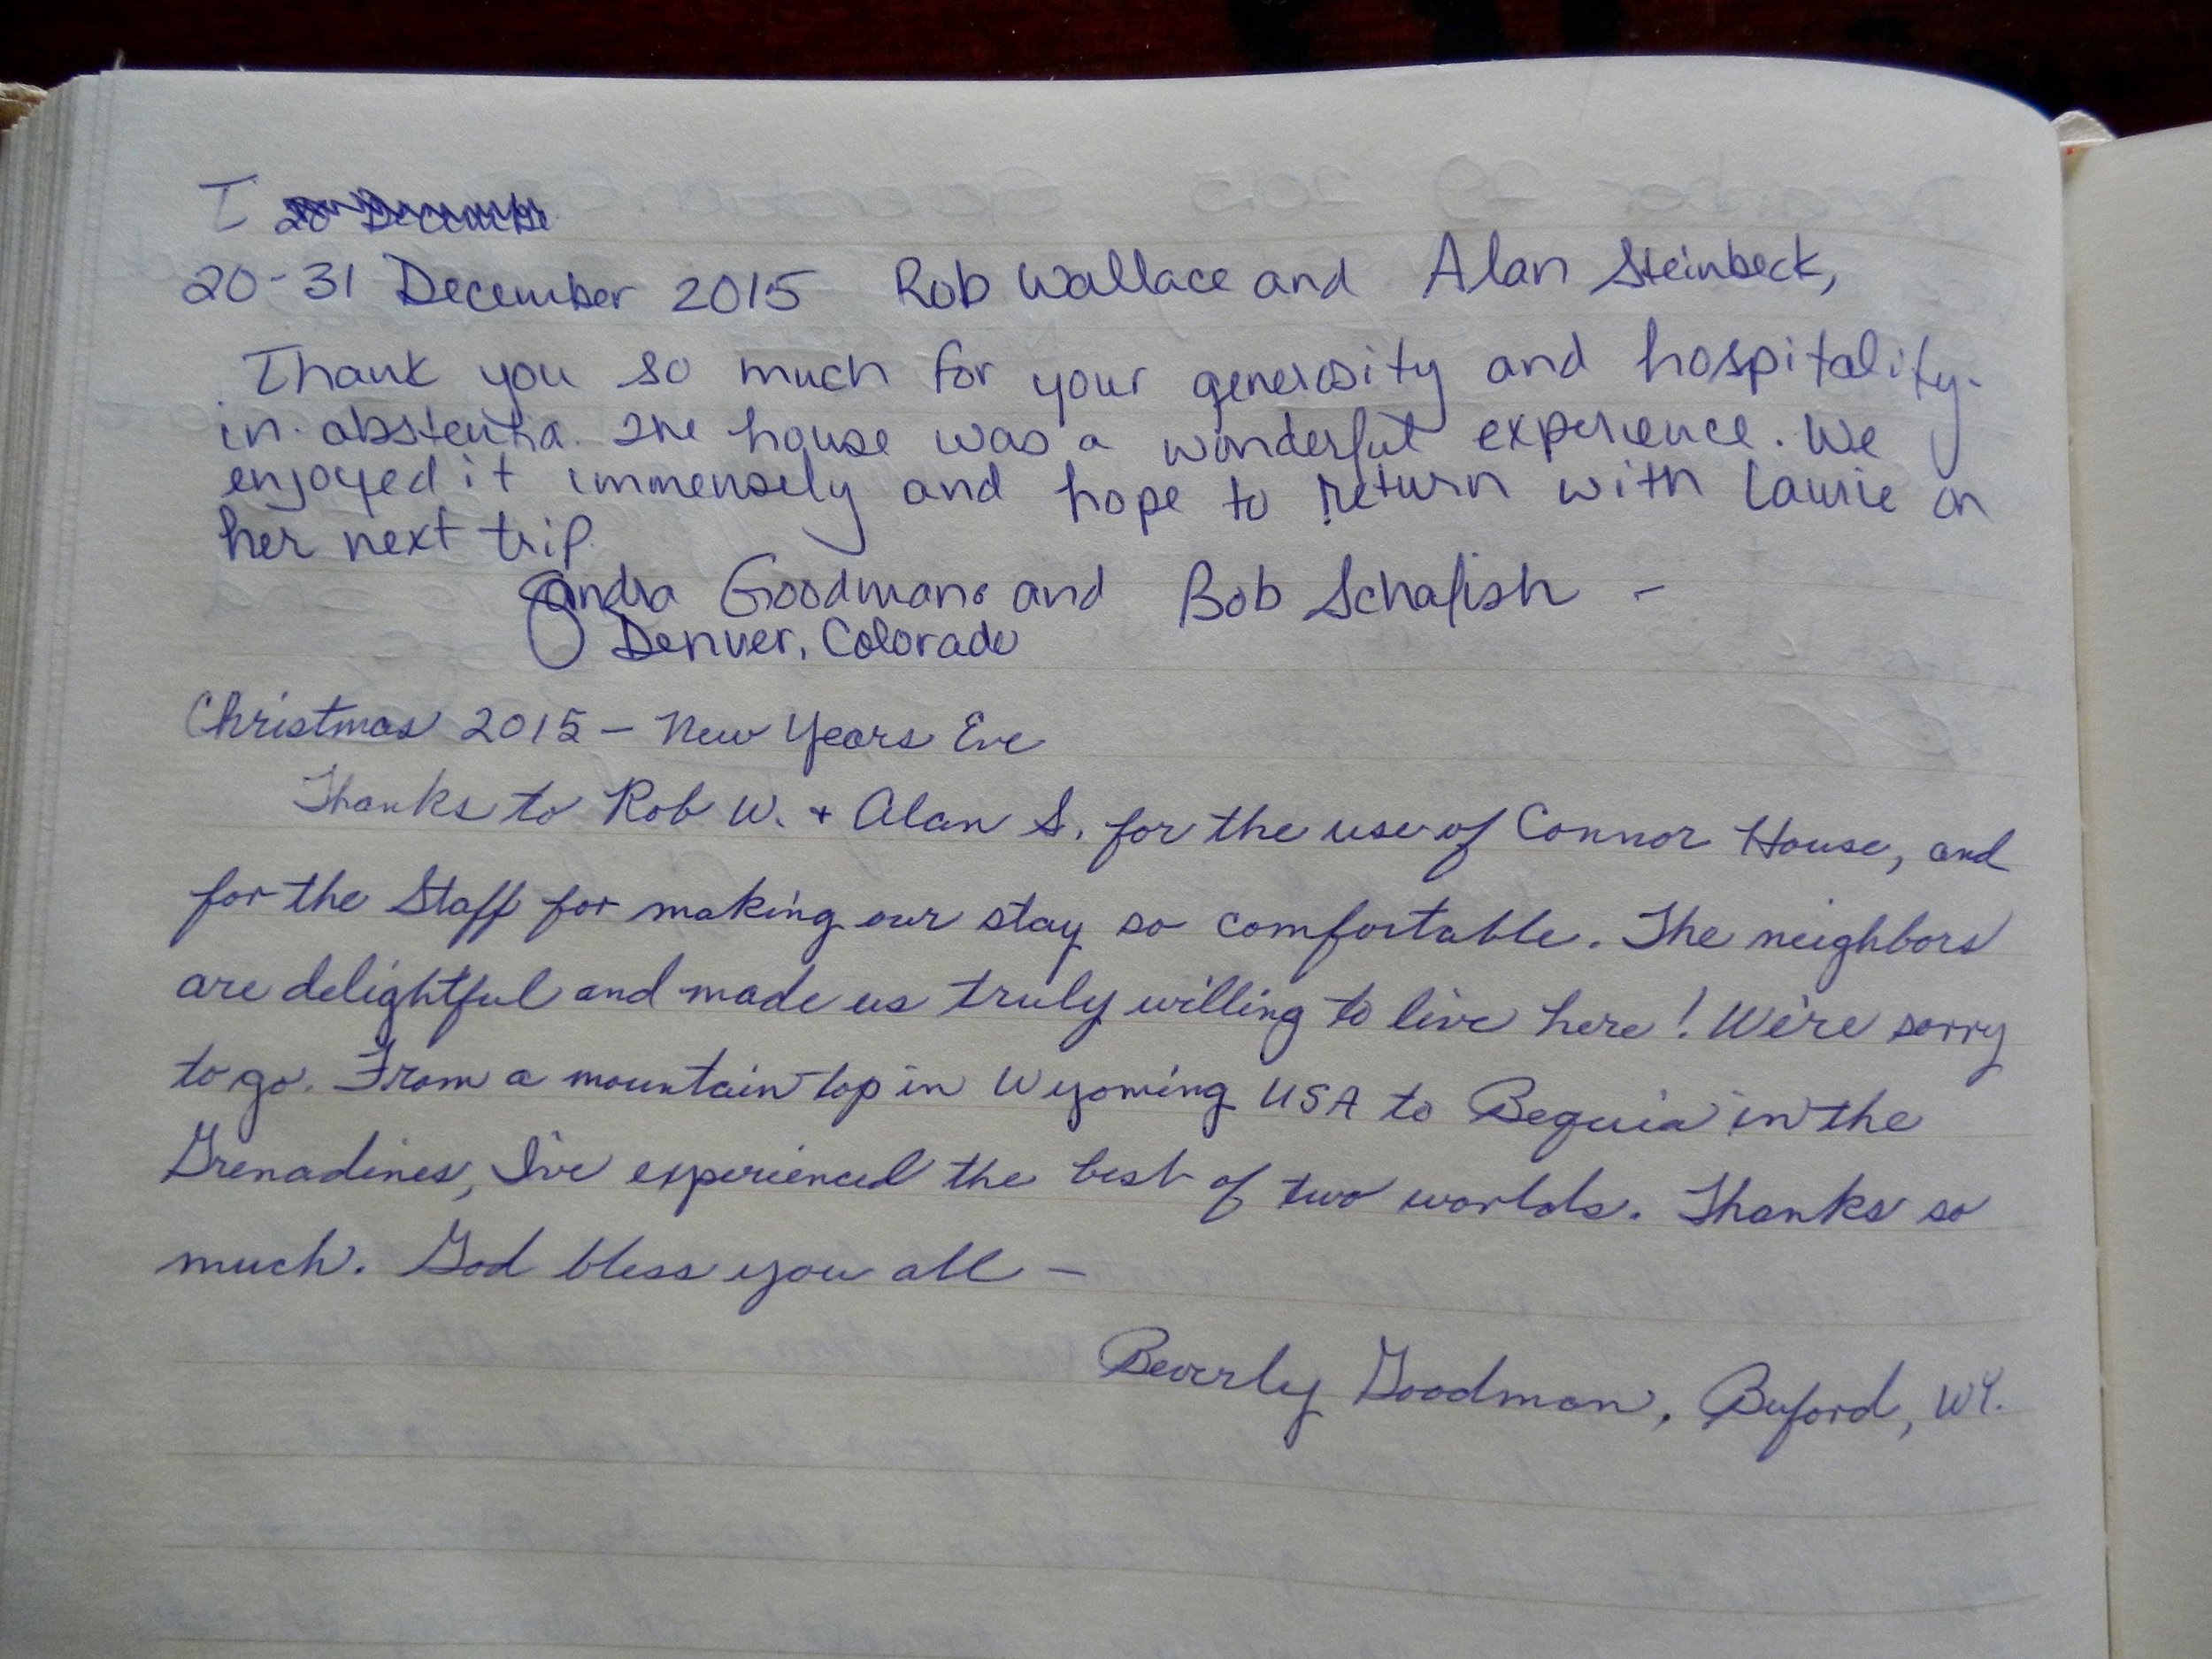 I 20 Decembe
20-31 December 2015 Rob Wallace and Alan Steinbeck,
Thank you so much for your generosity and hospitality-
in abstentia. The house was a wonderful experience. We
enjoyed it immensely and hope to return with Laurie on
her next trip.
Sandra Goodman and Bob Schafish -
Denver, Colorado
Christmas 2015 - New Years Eve
Thanks to Rob W. + Alan S. for the use of Connor House, and
for the Staff for making our stay so comfortable. The neighbors
are delightful and made us truly willing to live here! We're sorry
to go. From a mountain top in Wyoming USA to Bequia in the
Grenadines, I've experienced the best of two worlds. Thanks so
much. God bless you all -
Beverly Goodman, Buford, WY.